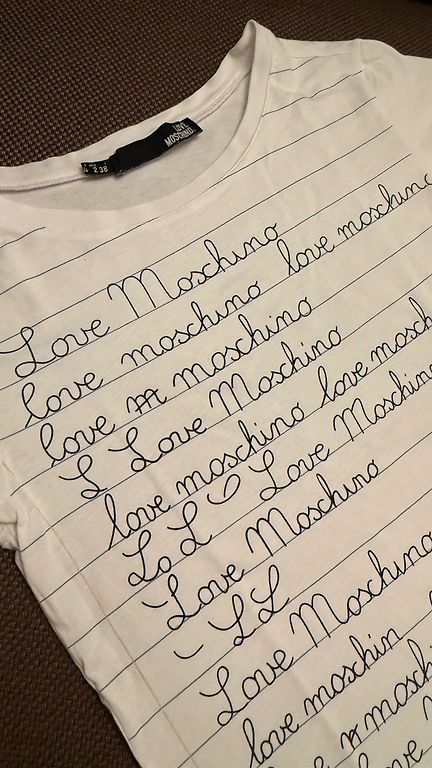 LOVE
MOSCHINO
2 38
Love Moschino
love moschino love moschino
love m moschino
L Love Moschino
love moschino love mosch
Lo L Love Moschino
Love Moschino
- LL
Love Moschino
love moschin
moschi